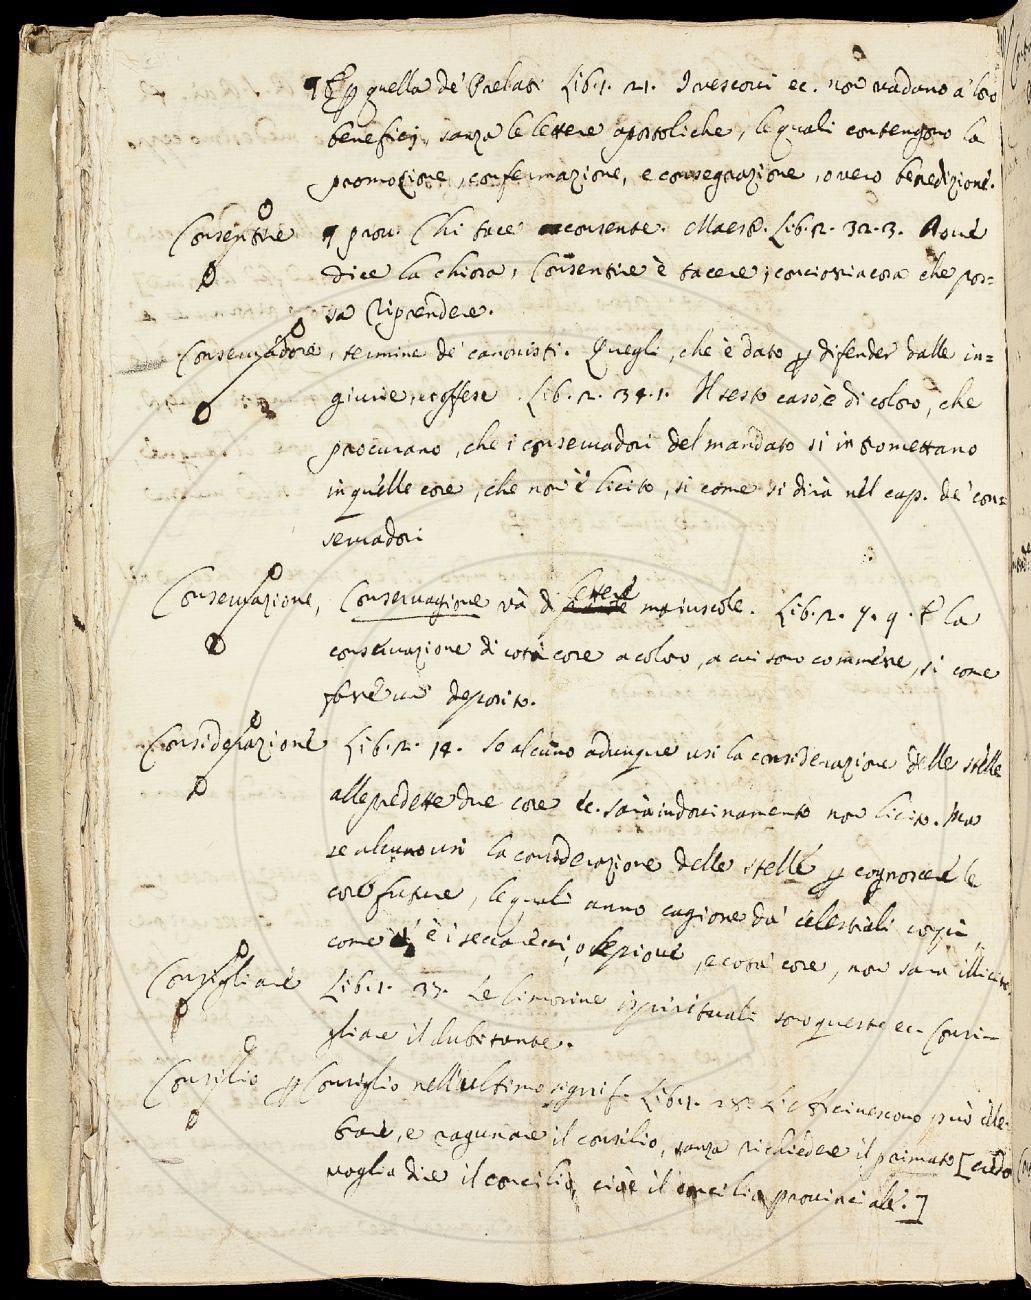 ¶ E p quella de' Prelati Lib. 1. 21. I vescovi ec. non vadano a' loro
beneficj, sanza le lettere apostoliche, le quali contengono la
promozione, confermazione, e consegrazione, overo benedizione.
Consentire ¶ prov. Chi tace consente. Maestr. Lib. 2. 32. 3. Dove
dice la chiosa, Consentire è tacere; conciossiacosa che pos=
sa riprendere.
Conservadore, termine de' canonisti. Quegli, che è dato p difender dalle in=
giurie, e offese. Lib. 2. 34. 1. Il sesto caso è di coloro, che
procurano, che i conservadori del mandato si intromettano
in quelle cose, che non è licito, si come si dirà nel cap. de' con=
servadori
Conservazione, Conservagione và di lettere maiuscole. Lib. 2. 7. 9. E la
conservazione di cotà cose a coloro, a cui sono commesse, si come
serìe un deposito.
Considerazione Lib. 2. 14. Se alcuno adunque usi la considerazione delle stelle
alle predette due cose ec. sarà indovinamento non licito. Ma
se alcuno usi la considerazione delle stelle p cognoscere le
cose future, le quali anno cagione da' celestiali corpi
come è i seccarecci, o le piove, e cotà cose, non sarà illicito.
Consigliare Lib. 1. 37. Le limosine ispirituali sono queste ec. Consi=
gliare il dubitante.
Consilio p Consiglio nell'ultimo signif. Lib. 1. 28. L'Arcivescovo può cele=
brare, e ragunare il consilio, sanza richiedere il primato [credo
voglia dire il concilio, cioè il concilio provinciale.]